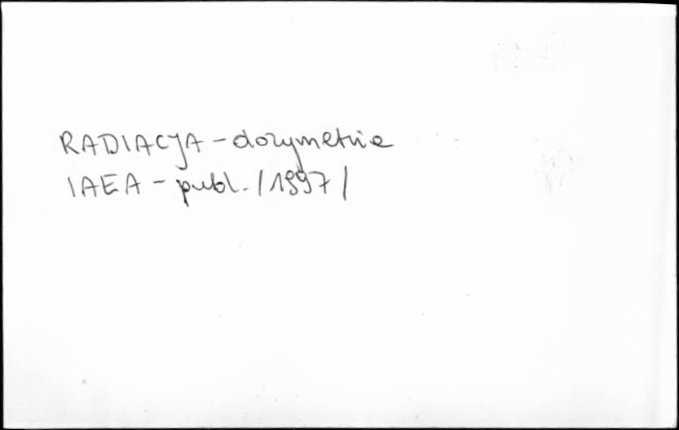 RADIACJA - dozymetria
IAEA - publ. /1997/